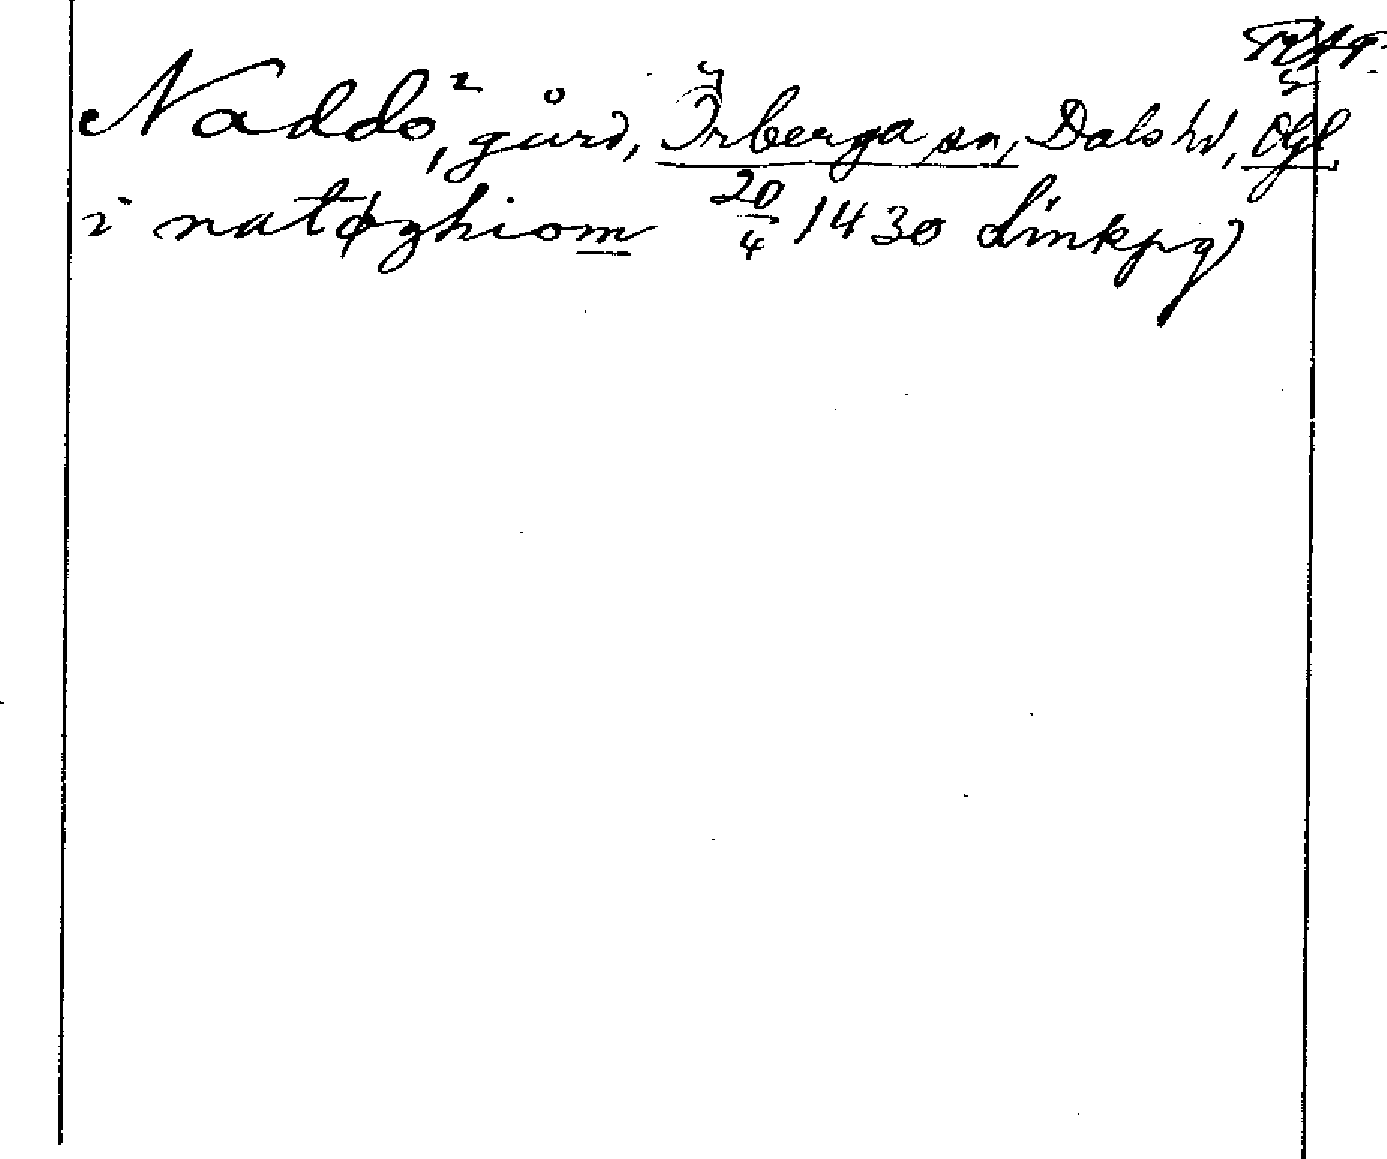 Naddö,² gård, Örberga sn, Dals hd, Ögl
i natøghiom 20/4 1430 Linkpg)